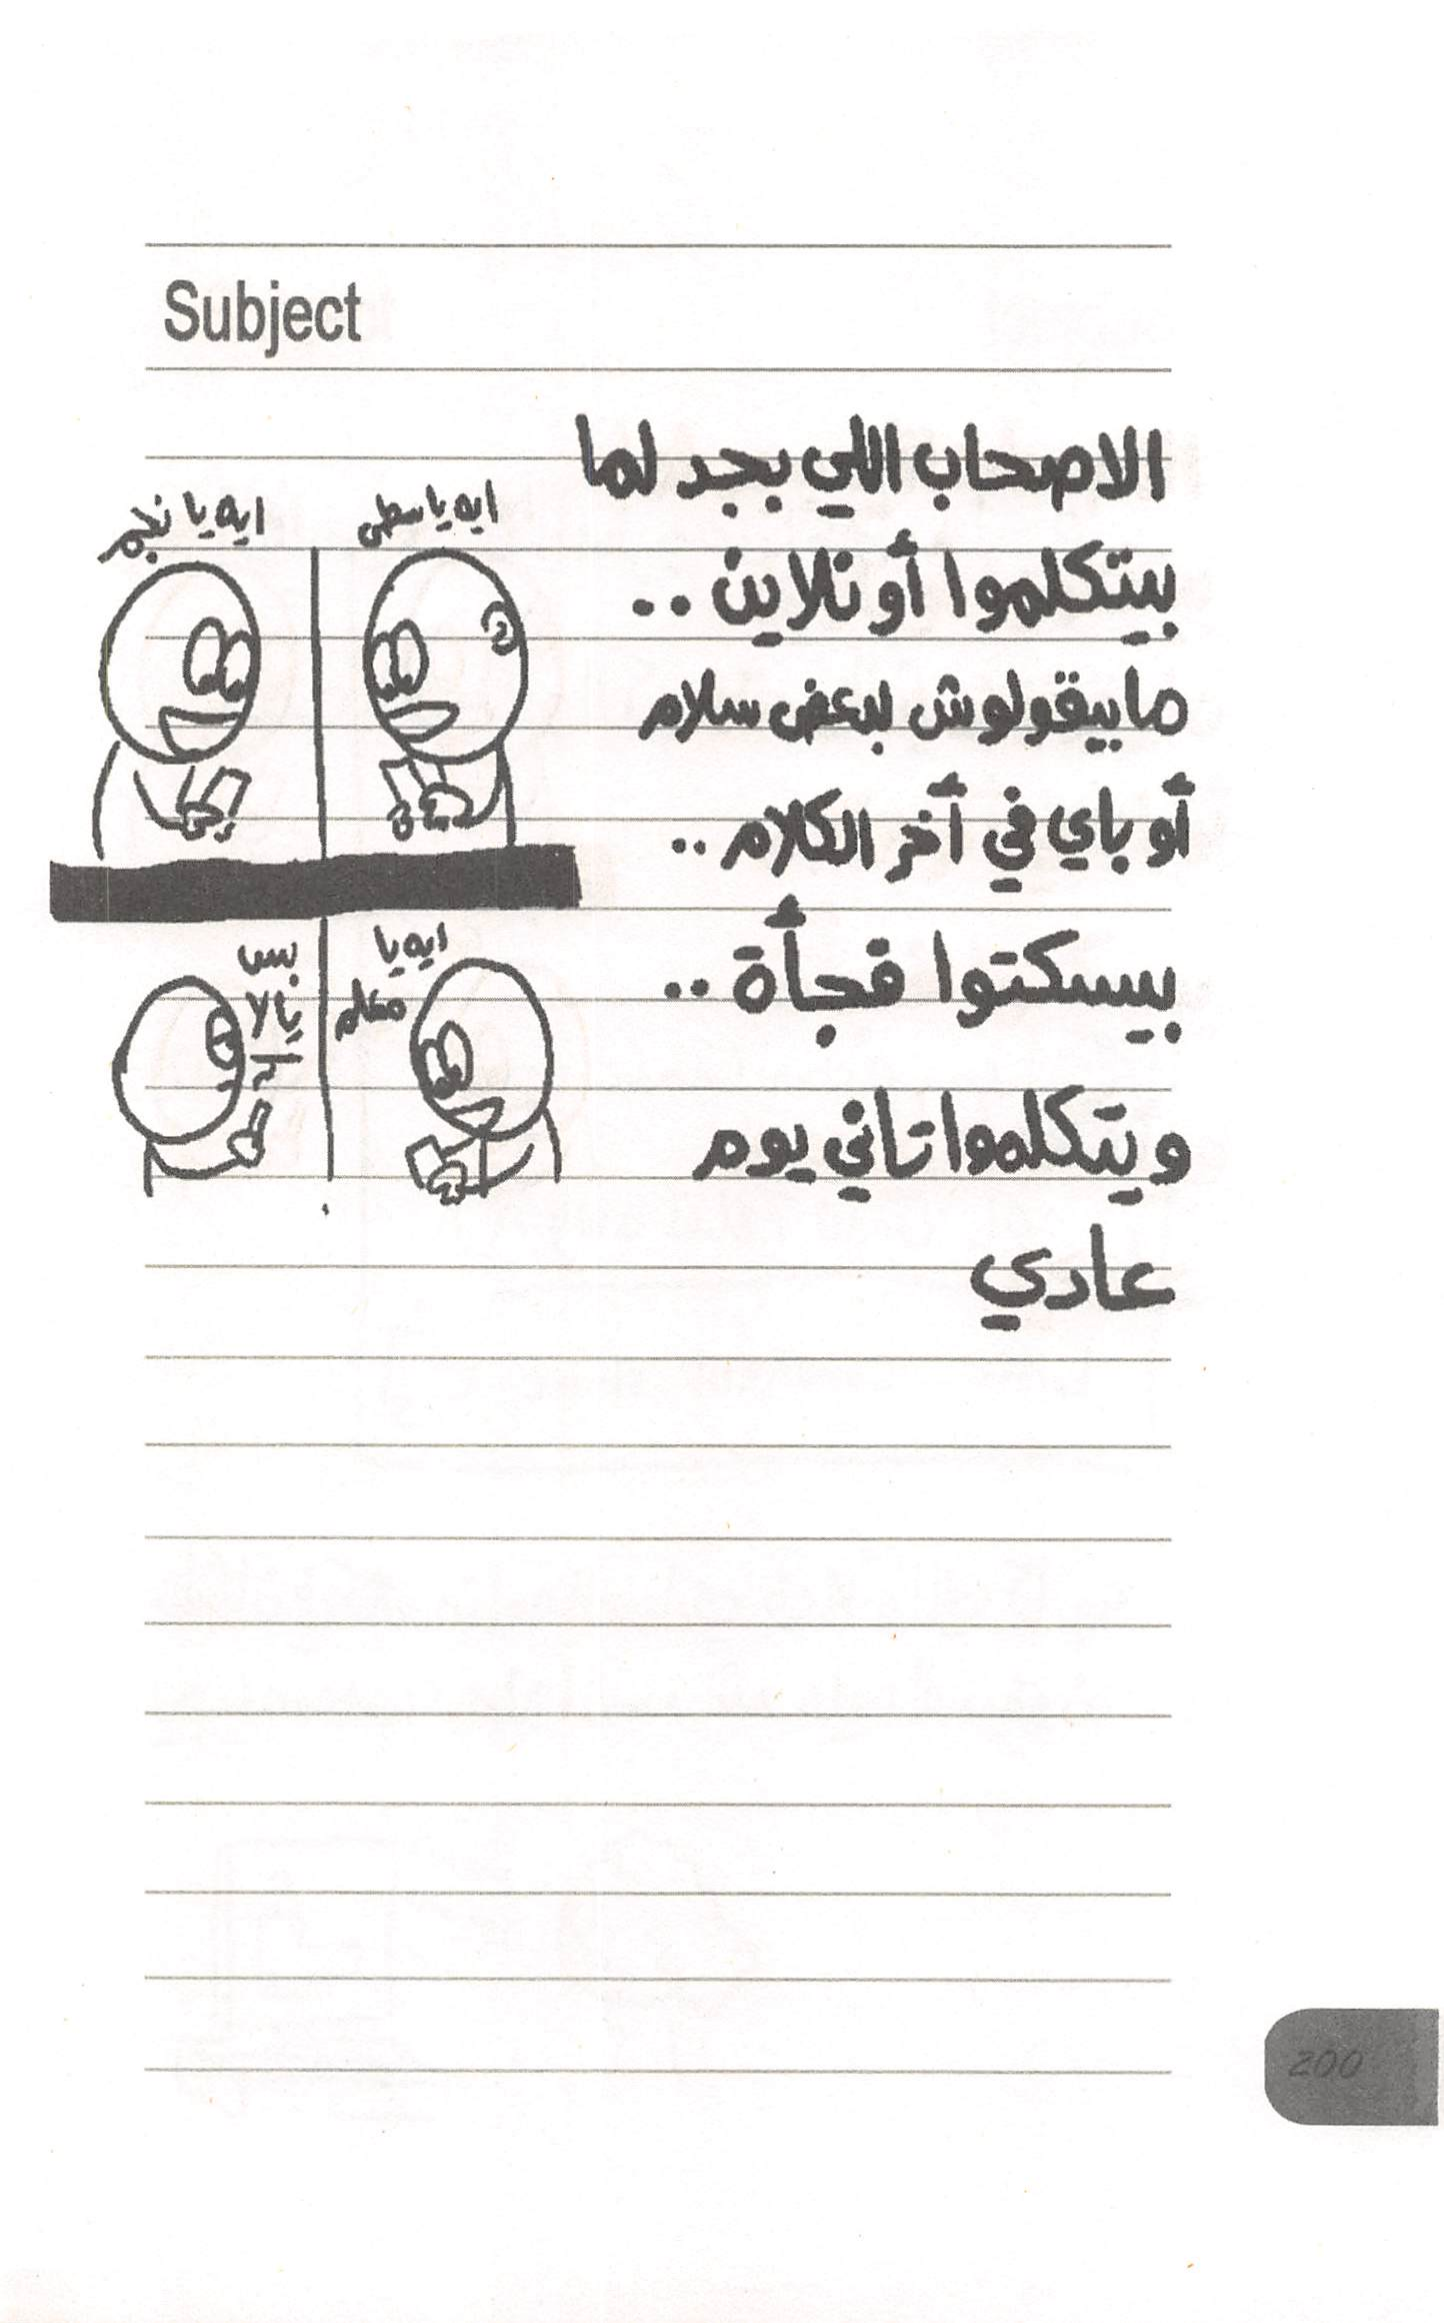 Subject
الاصحاب اللي بجد لما
بيتكلموا أونلاين ..
مابيقولوش لبعض سلام
أو باي في أخر الكلام ..
بيسكتوا فجأة ..
ويتكلموا تاني يوم
عادي
ايه ياسطى
ايه يا نجم
ايه يا
معلم
بس
يالا
200